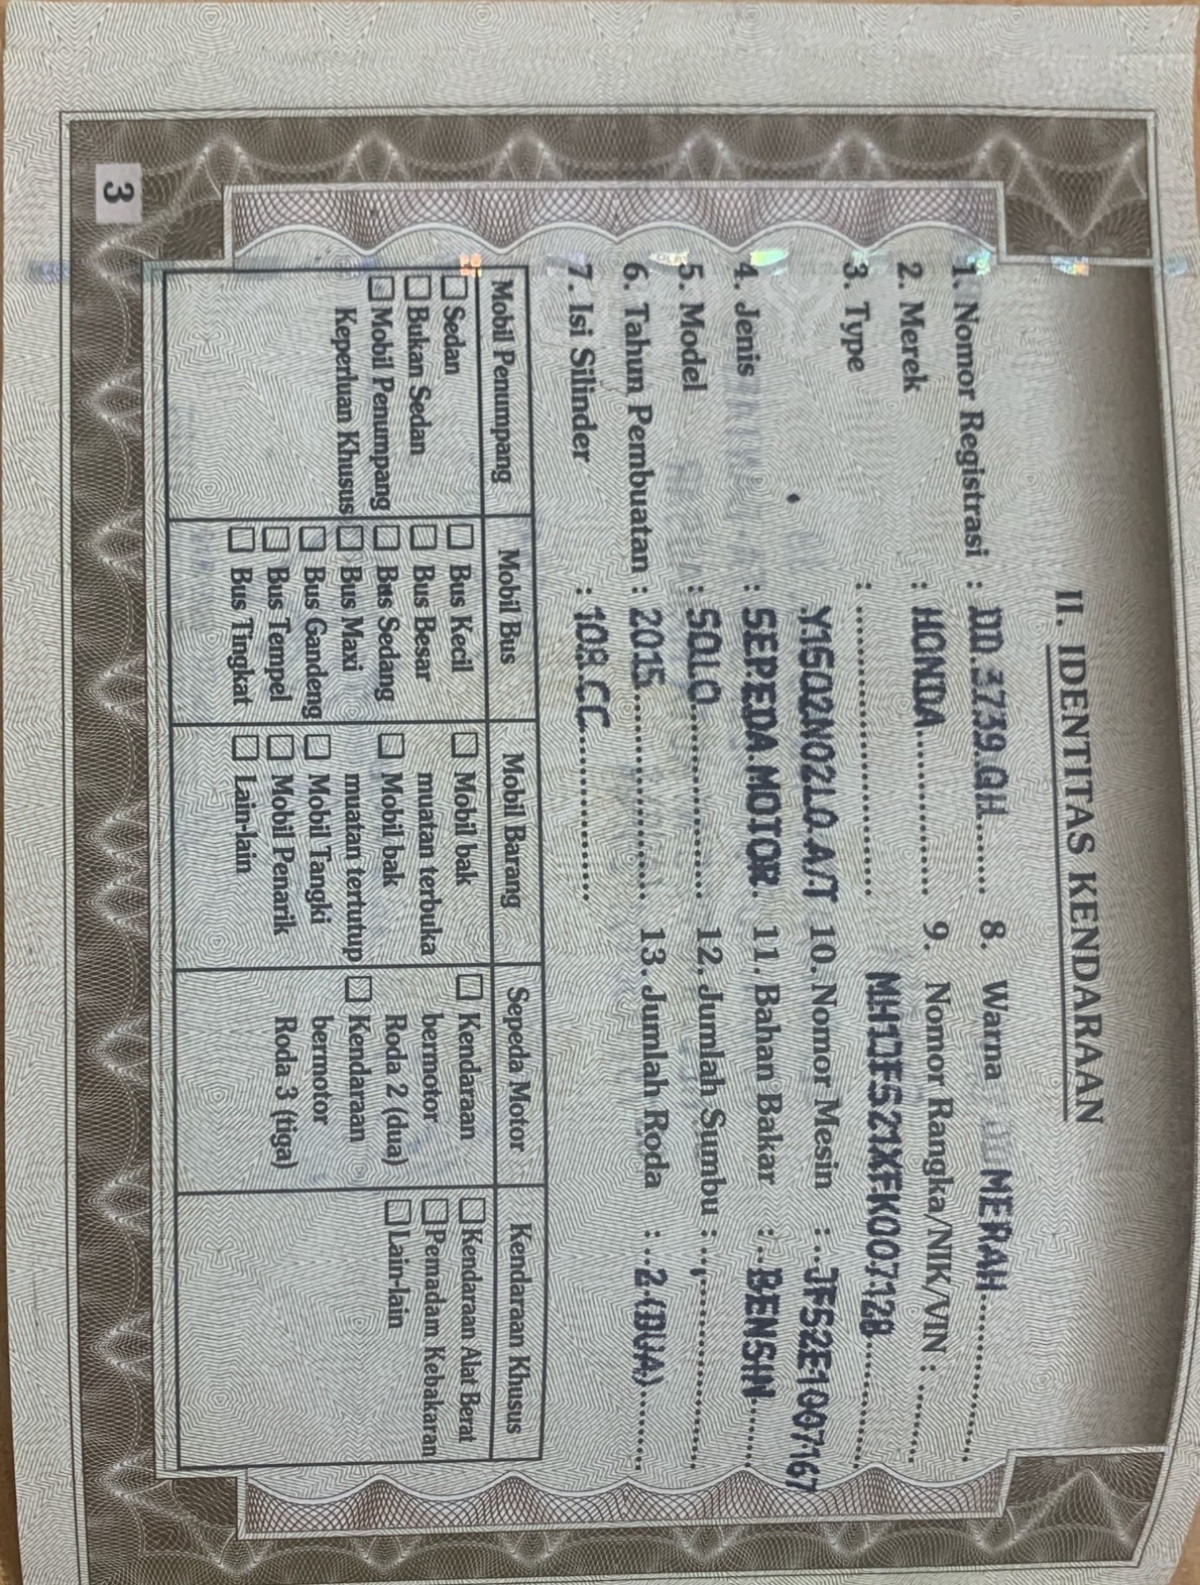 II. IDENTITAS KENDARAAN
1. Nomor Registrasi : DD.3739.QH
2. Merek : HONDA
3. Type :
Y1G02N02L0.A/T
4. Jenis : SEPEDA.MOTOR
5. Model : SOLO
6. Tahun Pembuatan : 2015
7. Isi Silinder : 108.CC
8. Warna MERAH
9. Nomor Rangka/NIK/VIN :
MH1JFS21XFK007128
10. Nomor Mesin : JFS2E1007167
11. Bahan Bakar : BENSIN
12. Jumlah Sumbu :
13. Jumlah Roda : 2.(DUA)
Mobil Penumpang
Sedan
Bukan Sedan
Mobil Penumpang
Keperluan Khusus
Mobil Bus
Bus Kecil
Bus Besar
Bus Sedang
Bus Maxi
Bus Gandeng
Bus Tempel
Bus Tingkat
Mobil Barang
Mobil bak
muatan terbuka
Mobil bak
muatan tertutup
Mobil Tangki
Mobil Penarik
Lain-lain
Sepeda Motor
Kendaraan
bermotor
Roda 2 (dua)
Kendaraan
bermotor
Roda 3 (tiga)
Kendaraan Khusus
Kendaraan Alat Berat
Pemadam Kebakaran
Lain-lain
3